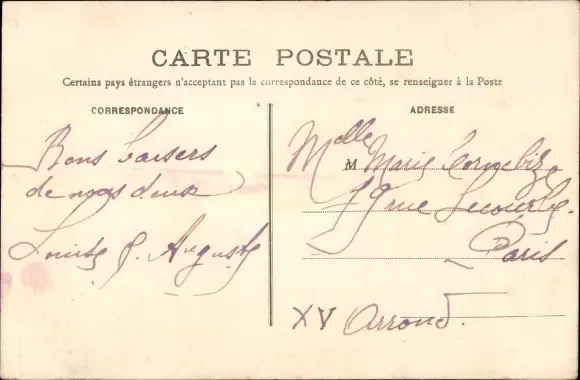 CARTE POSTALE
Certains pays étrangers n'acceptant pas la correspondance de ce côté, se renseigner à la Poste
CORRESPONDANCE
Bons baisers
de nous deux
Louise & Auguste
ADRESSE
Mdlle
M Marie
19 rue Lecourbe
Paris
XV Arrond.